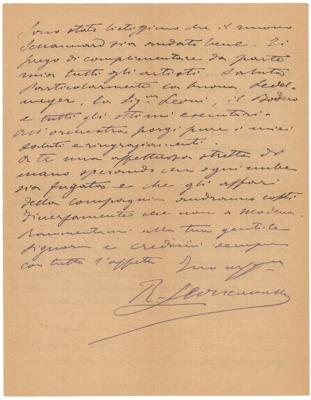 Sono stato lietissimo che il nuovo
Schaunard sia andato bene. Ti
prego di complimentare da parte
mia tutti gli artisti. Saluta
particolarmente la buona
la Sig.na Leoni, il Bodero
e tutti gli ottimi esecutori.
All'orchestra porgi pure i miei
saluti e ringraziamenti.
A te una affettuosa stretta di
mano sperando che ogni nube
sia fugata e che gli affari
della compagnia andranno costì
diversamente che non a Modena.
Rammentami alla tua gentile
signora e credimi sempre
con tutto l'affetto Tuo aff
R. Leoncavallo